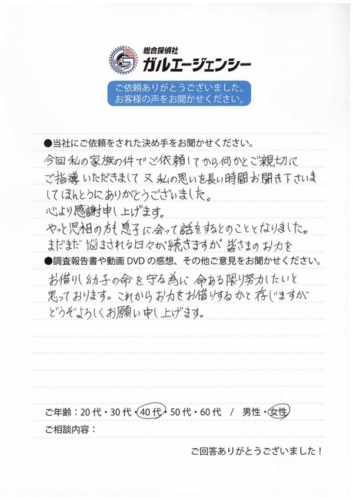 総合探偵社
ガルエージェンシー
ご依頼ありがとうございました。
お客様の声をお聞かせください。
●当社にご依頼をされた決め手をお聞かせください。
今回私の家族の件でご依頼してから何かとご親切に
ご指導いただきまして又私の思いを長い時間お聞き下さいま
してほんとうにありがとうございました。
心より感謝申し上げます。
やっと児相の方も息子に会って話をするとのこととなりました。
まだまだ悩まされる日々が続きますが皆さまのお力を
●調査報告書や動画DVDの感想、その他ご意見をお聞かせください。
お借りし幼子の命を守る為に命ある限り努力したいと
思っております。これからお力をお借りするかと存じますが
どうぞよろしくお願い申し上げます。
ご年齢:20代・30代・40代・50代・60代 / 男性・女性
ご相談内容:
ご回答ありがとうございました!